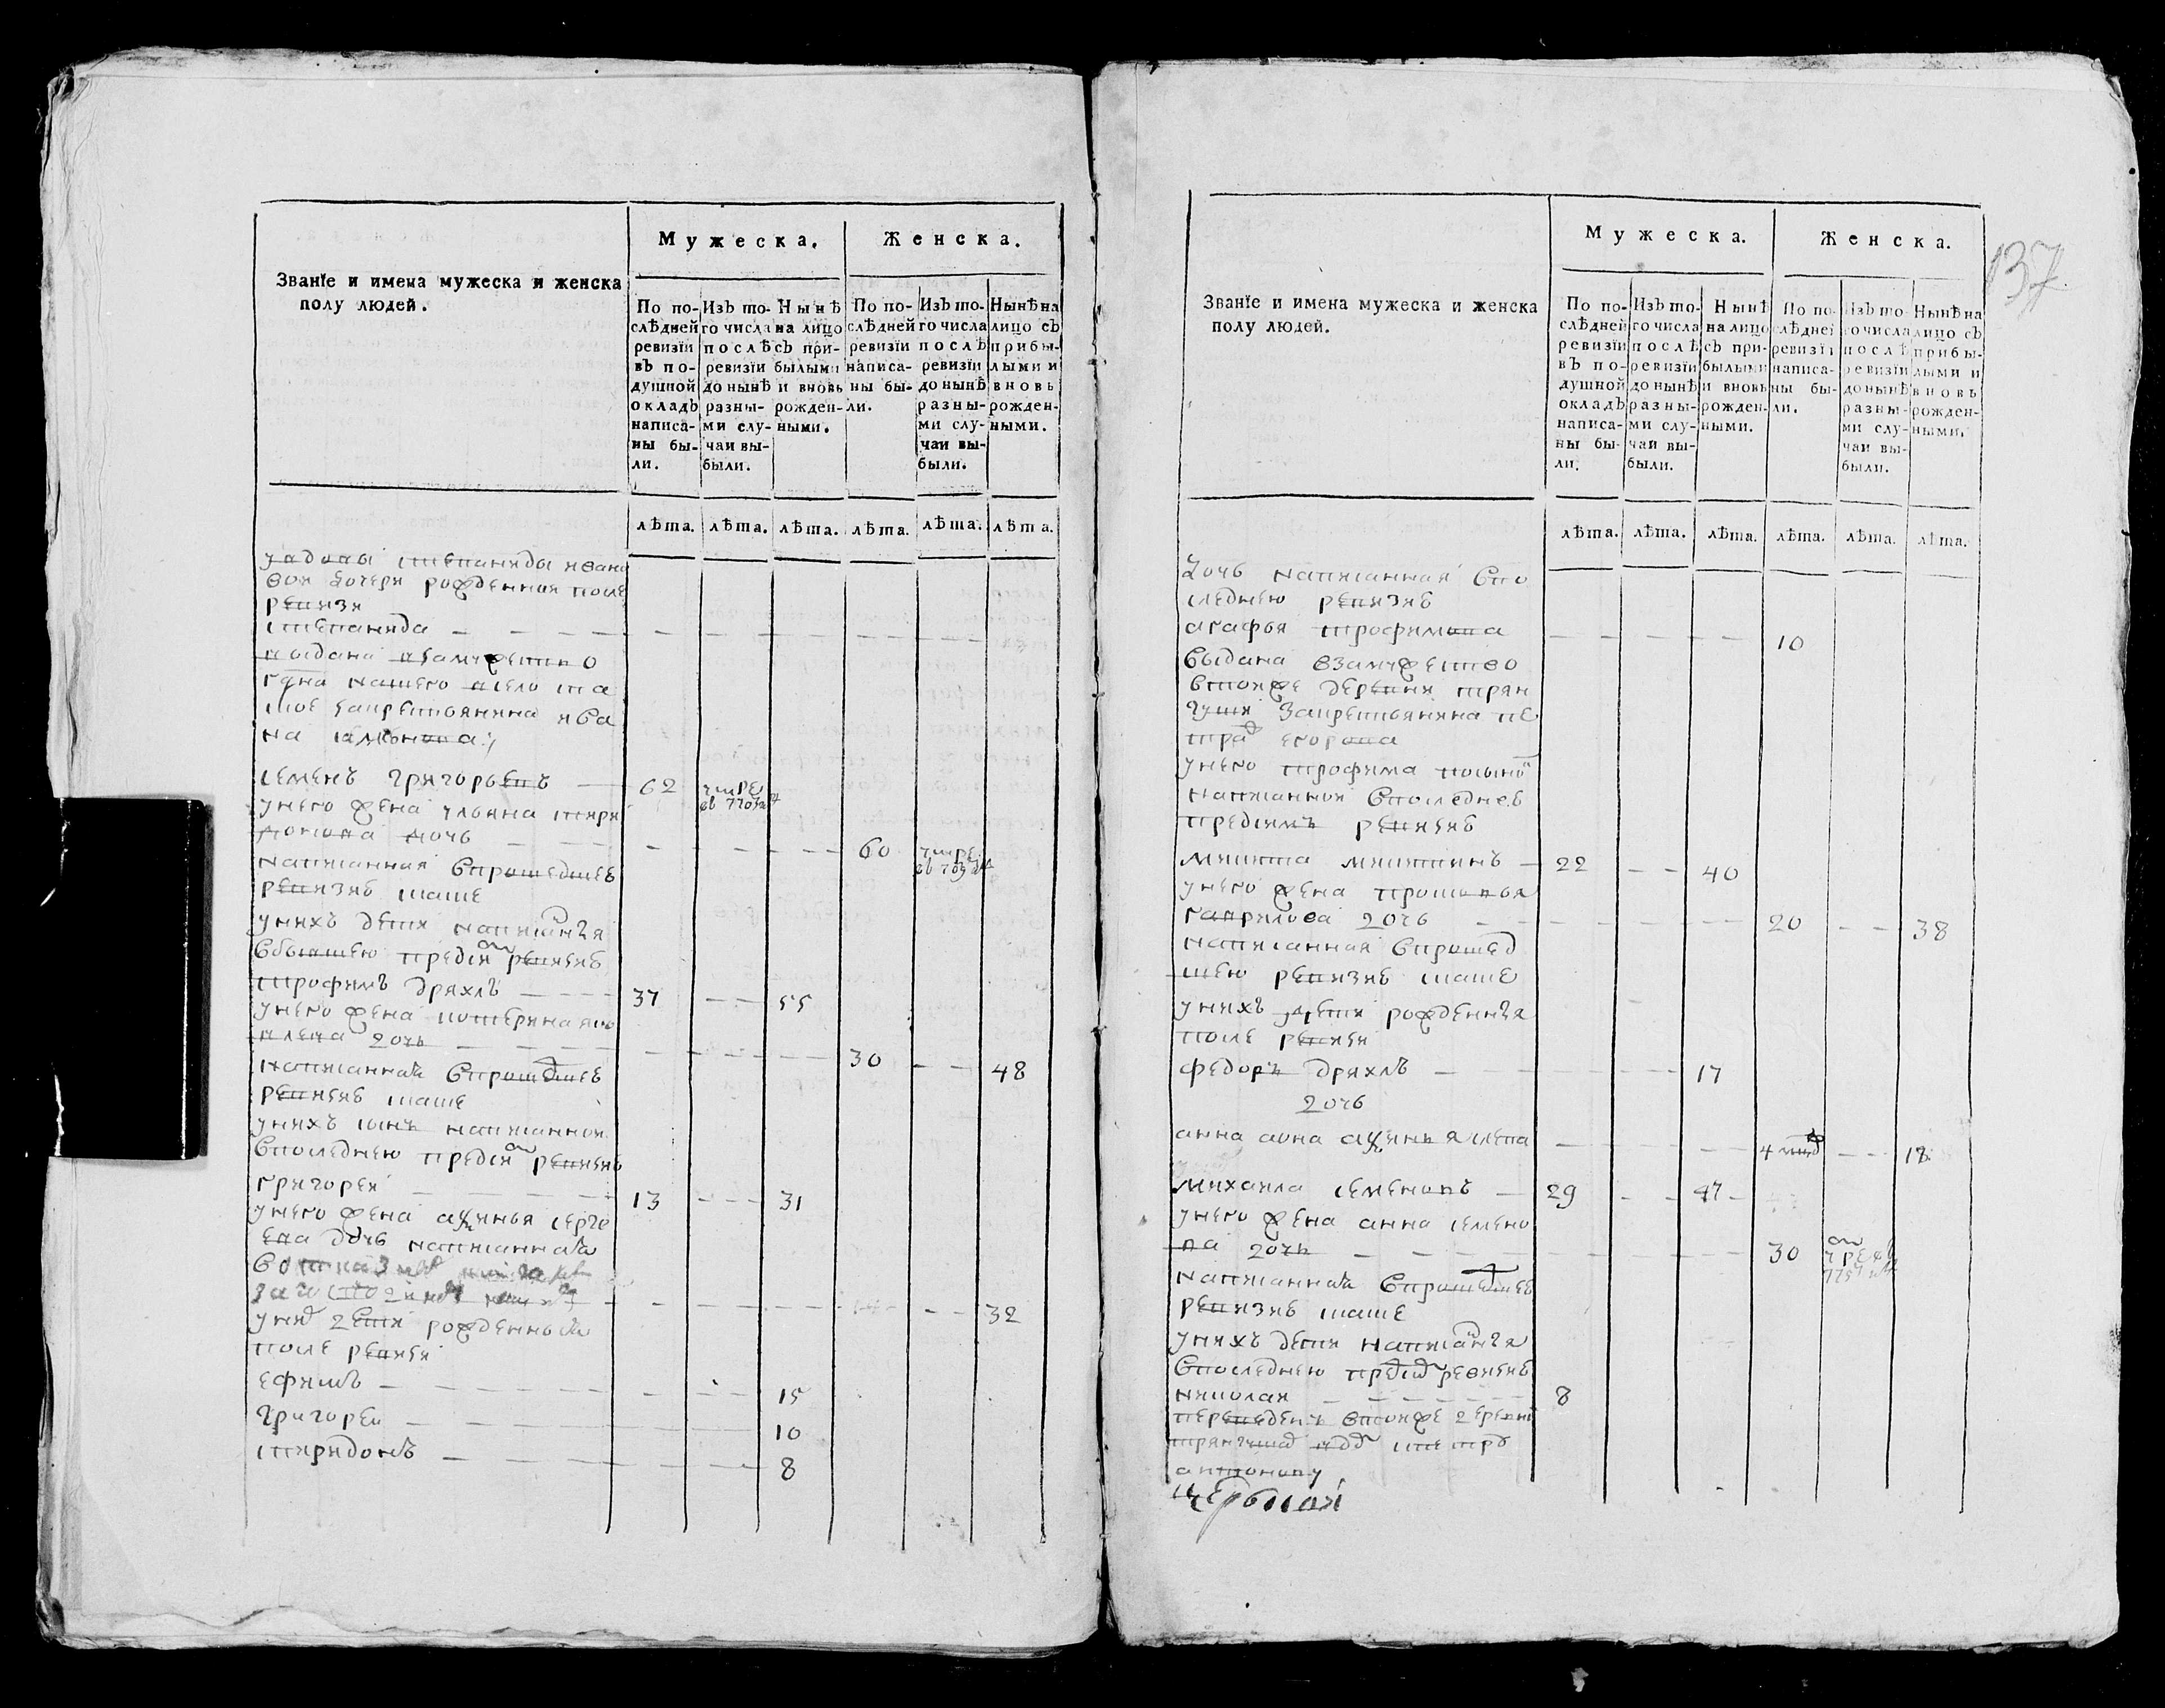 Званїе и имена мужеска и женска
полу людей.
Мужеска.
Женска.
По по-
слѣдней
ревизїи
въ по-
душной
окладъ
написа-
ны бы-
ли.
Изъ то-
го числа
послѣ
ревизїи
до нынѣ
разны-
ми слу-
чаи вы-
были.
Нынѣ
на лицо
съ при-
былыми
и вновь
рожден-
ными.
По по-
слѣдней
ревизїи
написа-
ны бы-
ли.
Изъ то-
го числа
послѣ
ревизїи
до нынѣ
разны-
ми слу-
чаи вы-
были.
Нынѣ на
лицо съ
прибы-
лыми и
вновь
рожден-
ными.
лѣта. лѣта. лѣта. лѣта. лѣта. лѣта.
удовы степаниды ивано
вои дочери рожденная после
ревизи
степанида
выдана взамужетво
нашего село
крестьянина ива
на
семенъ григорьевъ 62 умре
унего жена ульяна спири
донова дочь 60 умре
написанная впрошедшеѣ
ревизиѣ таже
унихъ дети написанъїя
вбывшею предсїя ревизиѣ
трофимъ дряхлъ 37 55
унего жена катерина яко
влева дочь 30 48
написанная впрошедшеѣ
ревизиѣ таже
унихъ сынъ написаннои
впоследнею предсия ревизиѣ
григореи 13 31
унего жена аксинья серге
ева дочь написанная
32
унихъ дети рожденныя
после ревизи
ефимъ 15
григореи 10
спиридонъ 8
137
Званїе и имена мужеска и женска
полу людей.
Мужеска.
Женска.
По по-
слѣдней
ревизїи
въ по-
душной
окладъ
написа-
ны бы-
ли.
Изъ то-
го числа
послѣ
ревизїи
до нынѣ
разны-
ми слу-
чаи вы-
были.
Нынѣ
на лицо
съ при-
былыми
и вновь
рожден-
ными.
По по-
слѣдней
ревизїи
написа-
ны бы-
ли.
Изъ то-
го числа
послѣ
ревизїи
до нынѣ
разны-
ми слу-
чаи вы-
были.
Нынѣ на
лицо съ
прибы-
лыми и
вновь
рожден-
ными.
лѣта. лѣта. лѣта. лѣта. лѣта. лѣта.
дочь написанная впо
следнею ревизиѣ
агафья трофимова 10
выдана взамужетво
втоиже деревни трян
гуши закрестьянина пе
тра егорова
унего трофима
написаннои впоследнеѣ
предсимъ ревизиѣ
микита микитинъ 22 40
унего жена прасковья
гаврилова дочь 20 38
написанная впрошед
шею ревизиѣ таже
унихъ дети рожденныя
после ревизи
федоръ дряхлъ 17
дочь
анна она аксинья слепа 4 18
михаила семеновъ 29 47
унего жена анна семено
ва дочь 30
написанная впрошедшеѣ
ревизиѣ таже
унихъ дети написанъїя
впоследнею предсия ревизиѣ
николаи 8
переведенъ втоиже деревни
петру
антонову